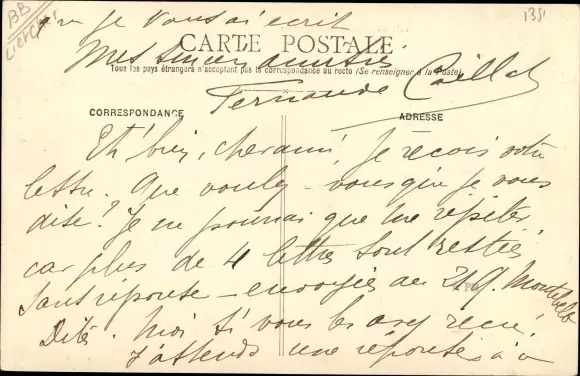 BB
1351
q'un je vous ai écrit
CARTE POSTALE
Mes sincères amitiés
Tous les pays étrangers n'acceptent pas la correspondance au recto (Se renseigner à la Poste)
Fernande
CORRESPONDANCE
ADRESSE
Eh' bien, cher ami, je reçois votre
lettre. Que voulez-vous que je vous
dise? Je ne pourrai que me répéter,
car plus de 4 lettres sont restées
sans réponse - envoyées au 21 Q. Montebello
Dites-moi si vous les avez reçu!
J'attends une réponse à